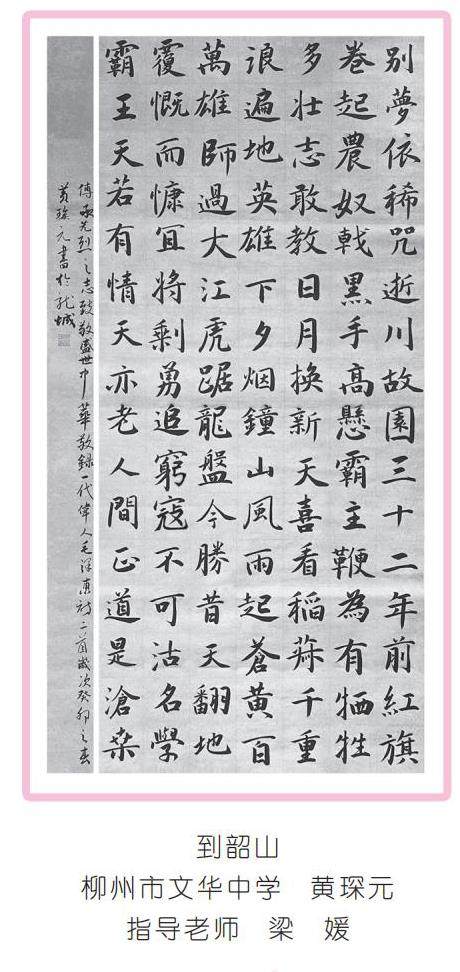 別夢依稀咒逝川故園三十二年前紅旗
卷起農奴戟黑手高懸霸主鞭為有牺牲
多壮志敢教日月換新天喜看稻菽千重
浪遍地英雄下夕烟鐘山風雨起蒼黄百
萬雄師過大江虎踞龍盤今勝昔天翻地
覆慨而慷宜將剩勇追窮寇不可沽名學
霸王天若有情天亦老人間正道是滄桒
傅承先烈之志致敬盛世中華敬録一代偉人毛澤東詩二首歲次癸卯之春
黄琛元書於龍城
到韶山
柳州市文华中学 黄琛元
指导老师 梁 媛